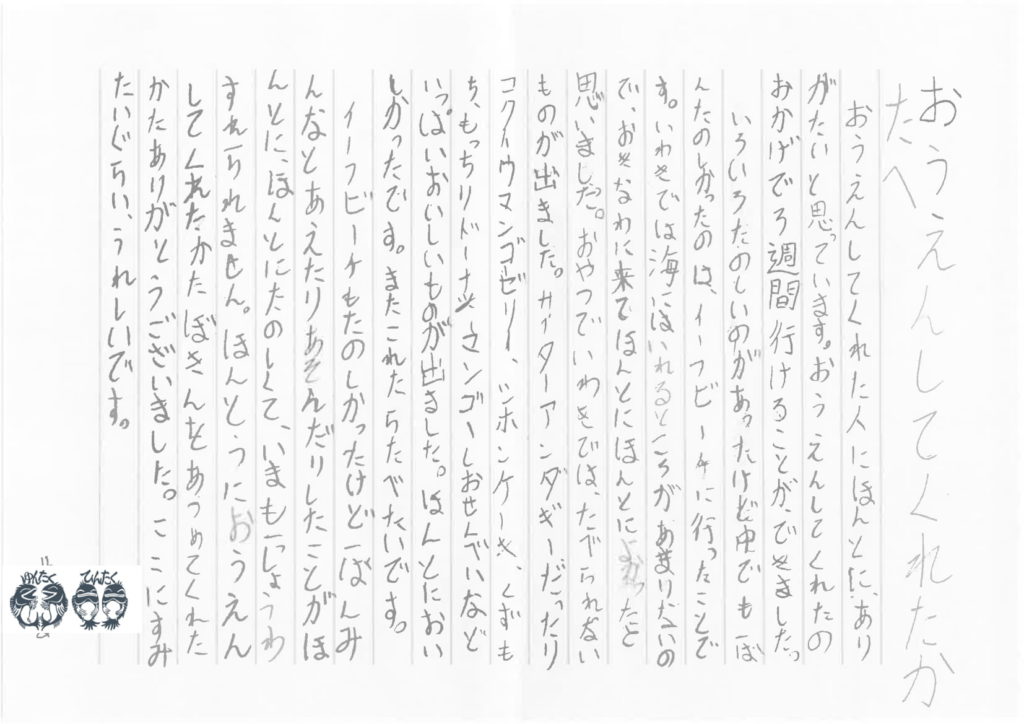 おうえんしてくれたか
たへ
おうえんしてくれた人にほんとに、あり
がたいと思っています。おうえんしてくれたの
おかげで2週間行けることが、できました。
いろいろたのしいのがあったけど中でも一ば
んたのしかったのは、イーフビーチに行ったことで
す。いわきでは海にはいれるところがあまりないの
で、おきなわに来てほんとにほんとによかったと
思いました。おやつでいわきでは、たべられない
ものが出ました。サーターアンダギーだったり
コクトウマンゴゼリー、シホンケーキ、くずも
ち、もっちりドーナツ、マンゴーしおせんべいなど
いっぱいおいしいものが出ました。ほんとにおい
しかったです。またこれたらたべたいです。
イーフビーチもたのしかったけど一ばんみ
んなとあえたりあそんだりしたことがほ
んとに、ほんとにたのしくて、いまも一しょうわ
すれられません。ほんとうにおうえん
してくれたかたぼきんをあつめてくれた
かたありがとうございました。ここにすみ
たいぐらい、うれしいです。
ゆんたく
てぃんたく